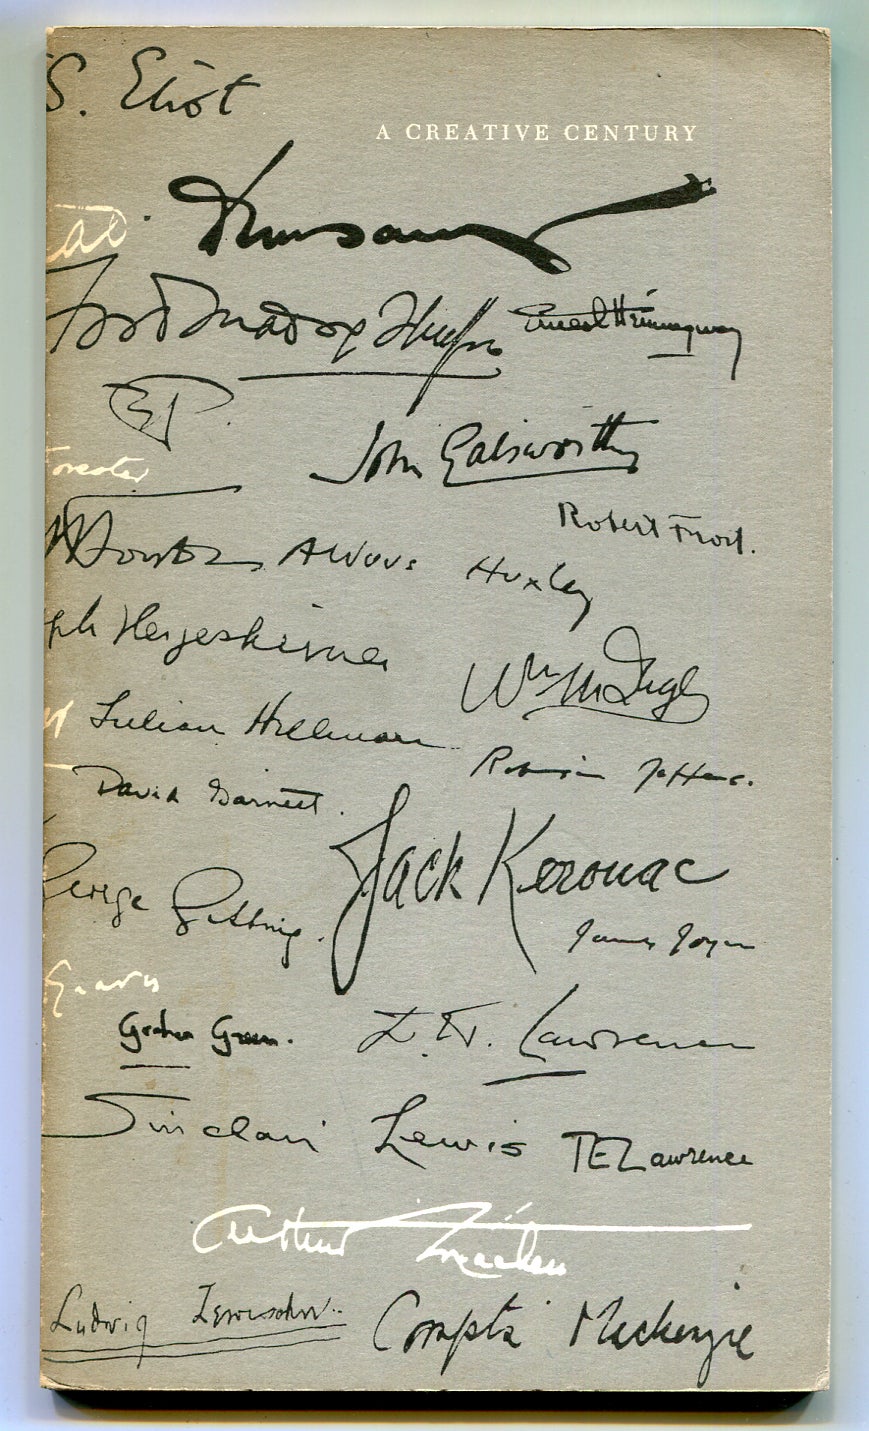 S. Eliot
A CREATIVE CENTURY
Dunsany
Ford Madox Hueffer
Ernest Hemingway
EP.
John Galsworthy
Robert Frost.
Aldous Huxley
ph Hergesheimer
Wm McFee
Lillian Hellman
Robinson Jeffers.
David Garnett.
George Gissing.
Jack Kerouac
James Joyce
Graves
Graham Greene.
D. H. Lawrence
Sinclair Lewis
TE Lawrence
Arthur Machen
Ludwig Lewisohn
Compton Mackenzie